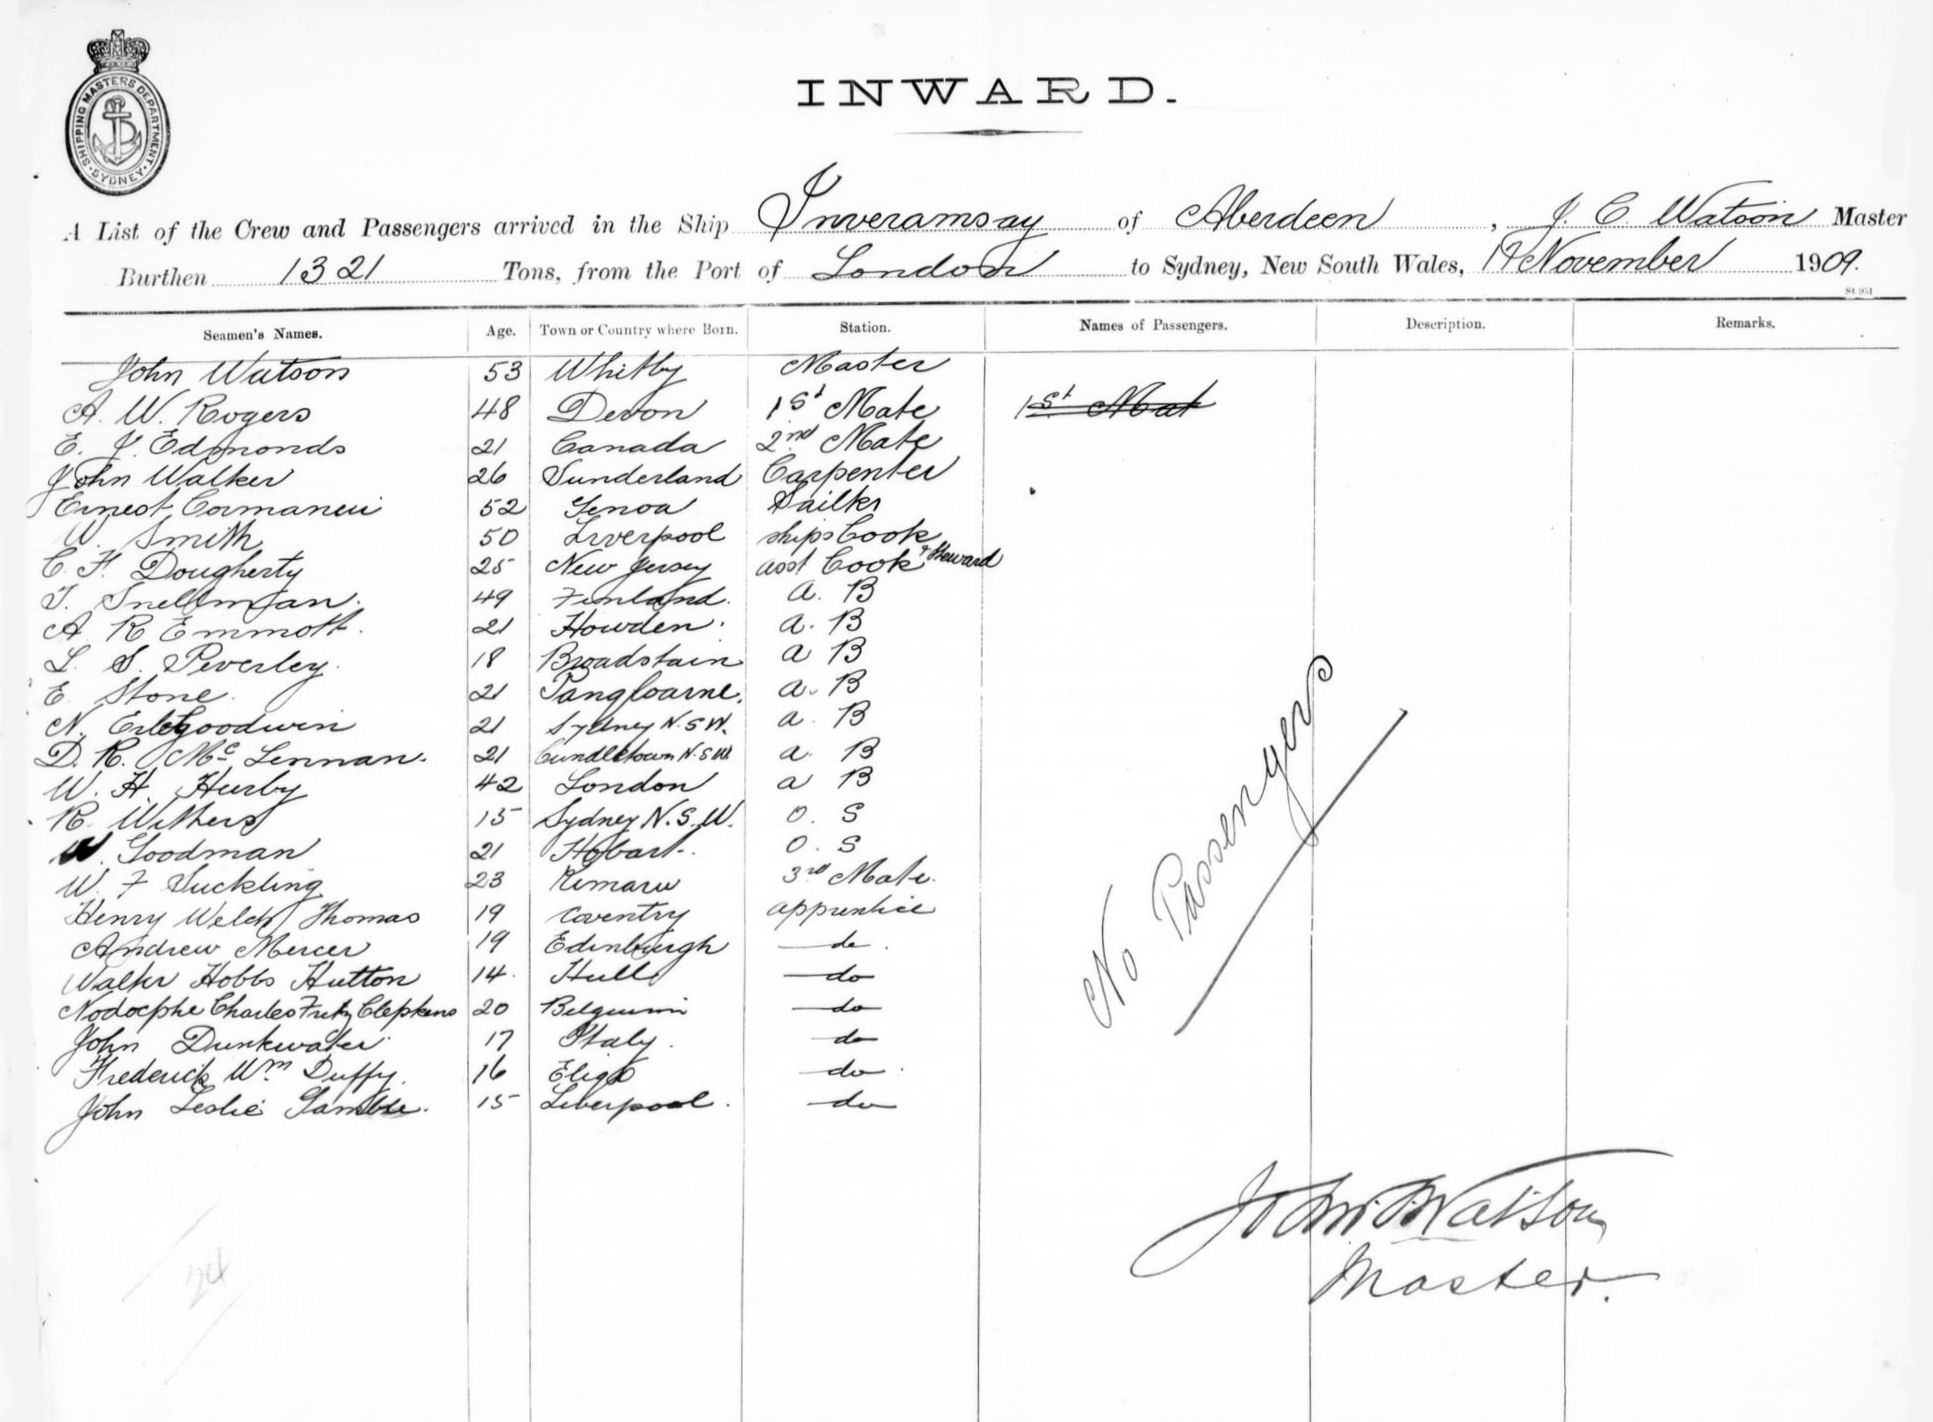 SHIPPING MASTERS DEPARTMENT
SYDNEY
INWARD.
A List of the Crew and Passengers arrived in the Ship Inveramsay of Aberdeen, J. C. Watson Master
Burthen 1321 Tons, from the Port of London to Sydney, New South Wales, November 1909.
Seamen's Names. Age. Town or Country where Born. Station. Names of Passengers. Description. Remarks.
John Watson 53 Whitby Master
A. W. Rogers 48 Devon 1st Mate 1st Mat
E. J. Edmonds 21 Canada 2nd Mate
John Walker 26 Sunderland Carpenter
Ernest 52 Genoa Sailkr
W. Smith 50 Liverpool ships Cook
C. F. Dougherty 25 New Jersey asst Cook & Steward
T. Snellman. 49 Finland. a. B
A R Emmott. 21 Howden. a. B
L. S. Peverley. 18 Broadstain a B
E. Stone. 21 Pangbourne. a. B
N. Goodwin 21 Sydney N.S.W. a. B
D. R. Mc Lennan. 21 Cundletown N.S.W. a. B
W. H. Hurby 42 London a B
R. Withers 15 Sydney N.S.W. O. S
W. Goodman 21 Hobart. O. S
W. F Suckling 23 3rd Mate.
Henry Welch Thomas 19 Coventry apprentice
Andrew Mercer 19 Edinburgh do.
Walter Hobbs Hutton 14. Hull do
Charles Fritz Clepkens 20 Belguim do
John Dunkwater 17 Italy. do
Frederick Wm. Duffy. 16 do.
John Leslie Gamble. 15 Liverpool. do
No Passengers
John Watson
Master.
24